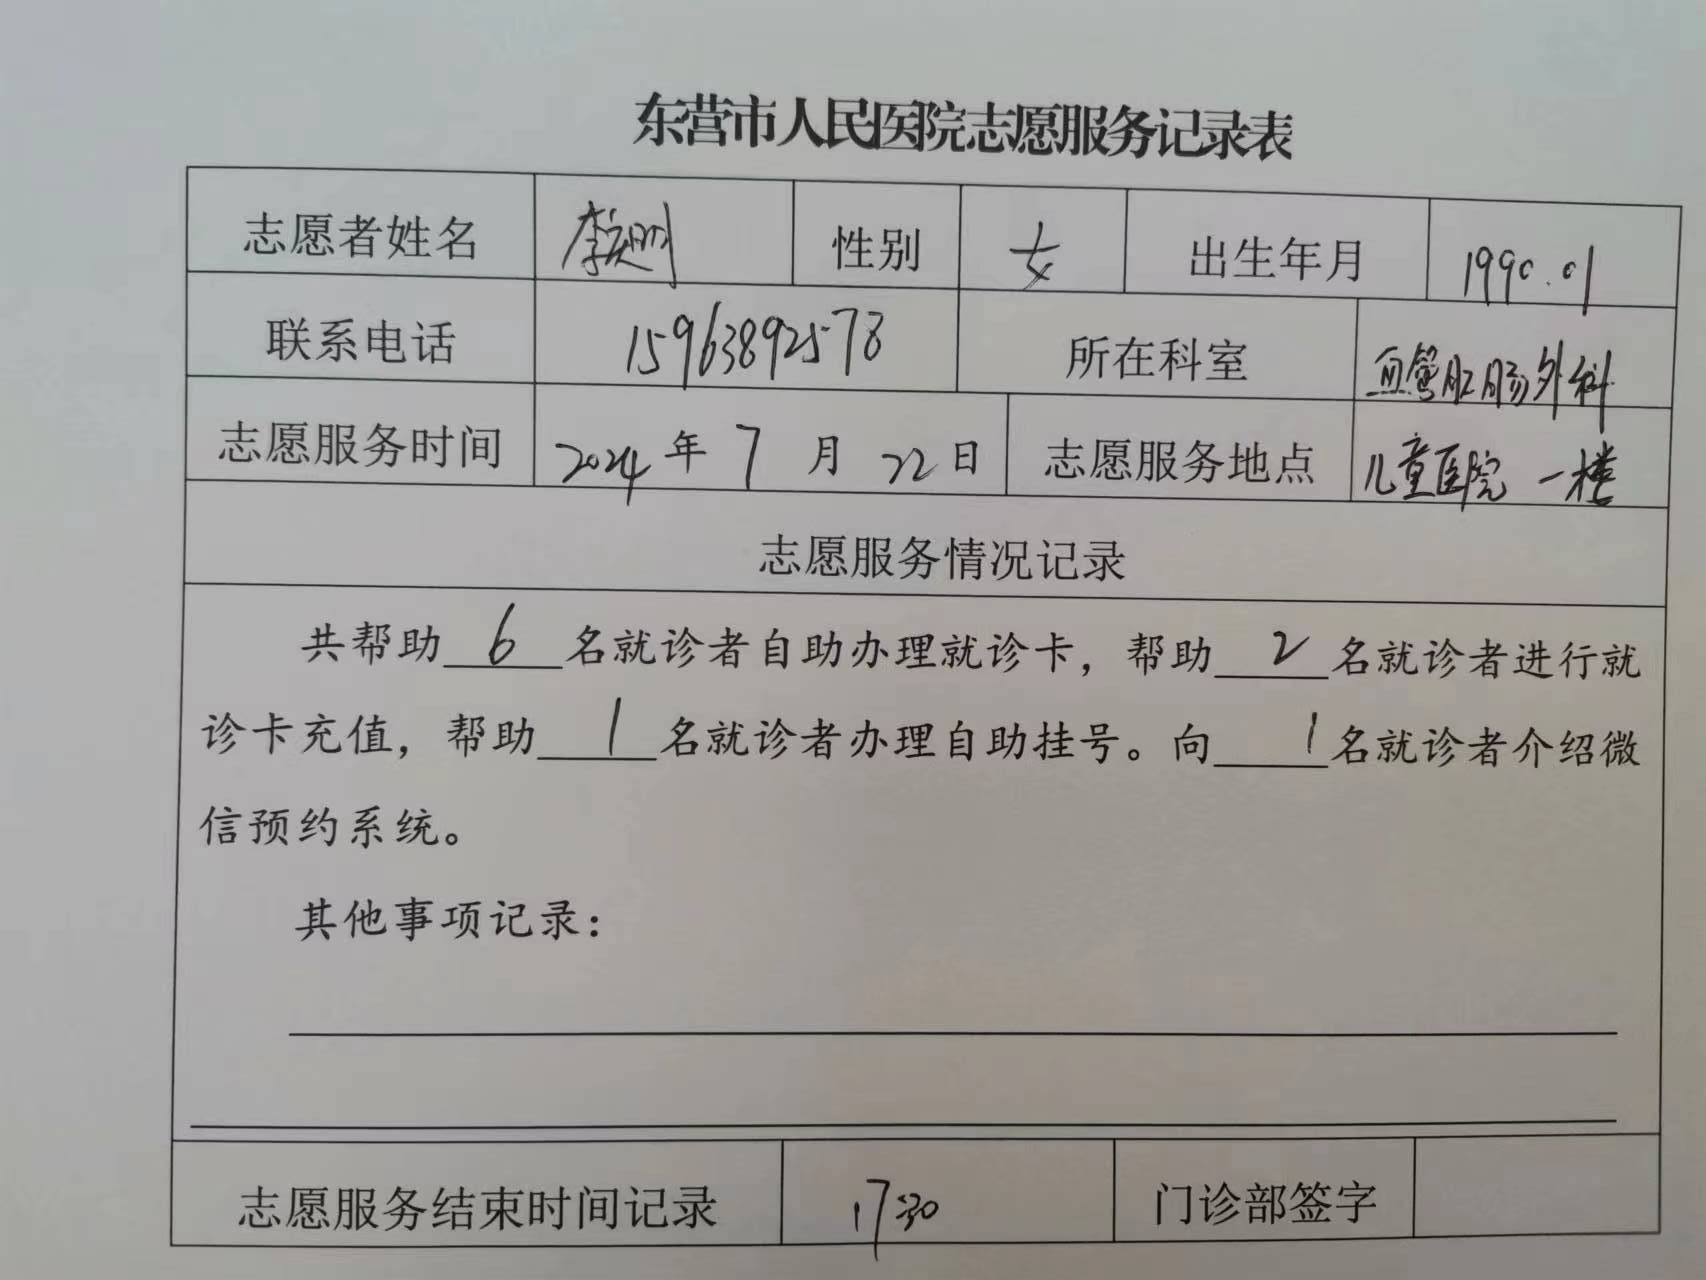 东营市人民医院志愿服务记录表
志愿者姓名 李 性别 女 出生年月 1990.01
联系电话 15963892578 所在科室 血管肛肠外科
志愿服务时间 2024年7月22日 志愿服务地点 儿童医院 一楼
志愿服务情况记录
共帮助6名就诊者自助办理就诊卡，帮助2名就诊者进行就
诊卡充值，帮助1名就诊者办理自助挂号。向1名就诊者介绍微
信预约系统。
其他事项记录：
志愿服务结束时间记录 17:30 门诊部签字